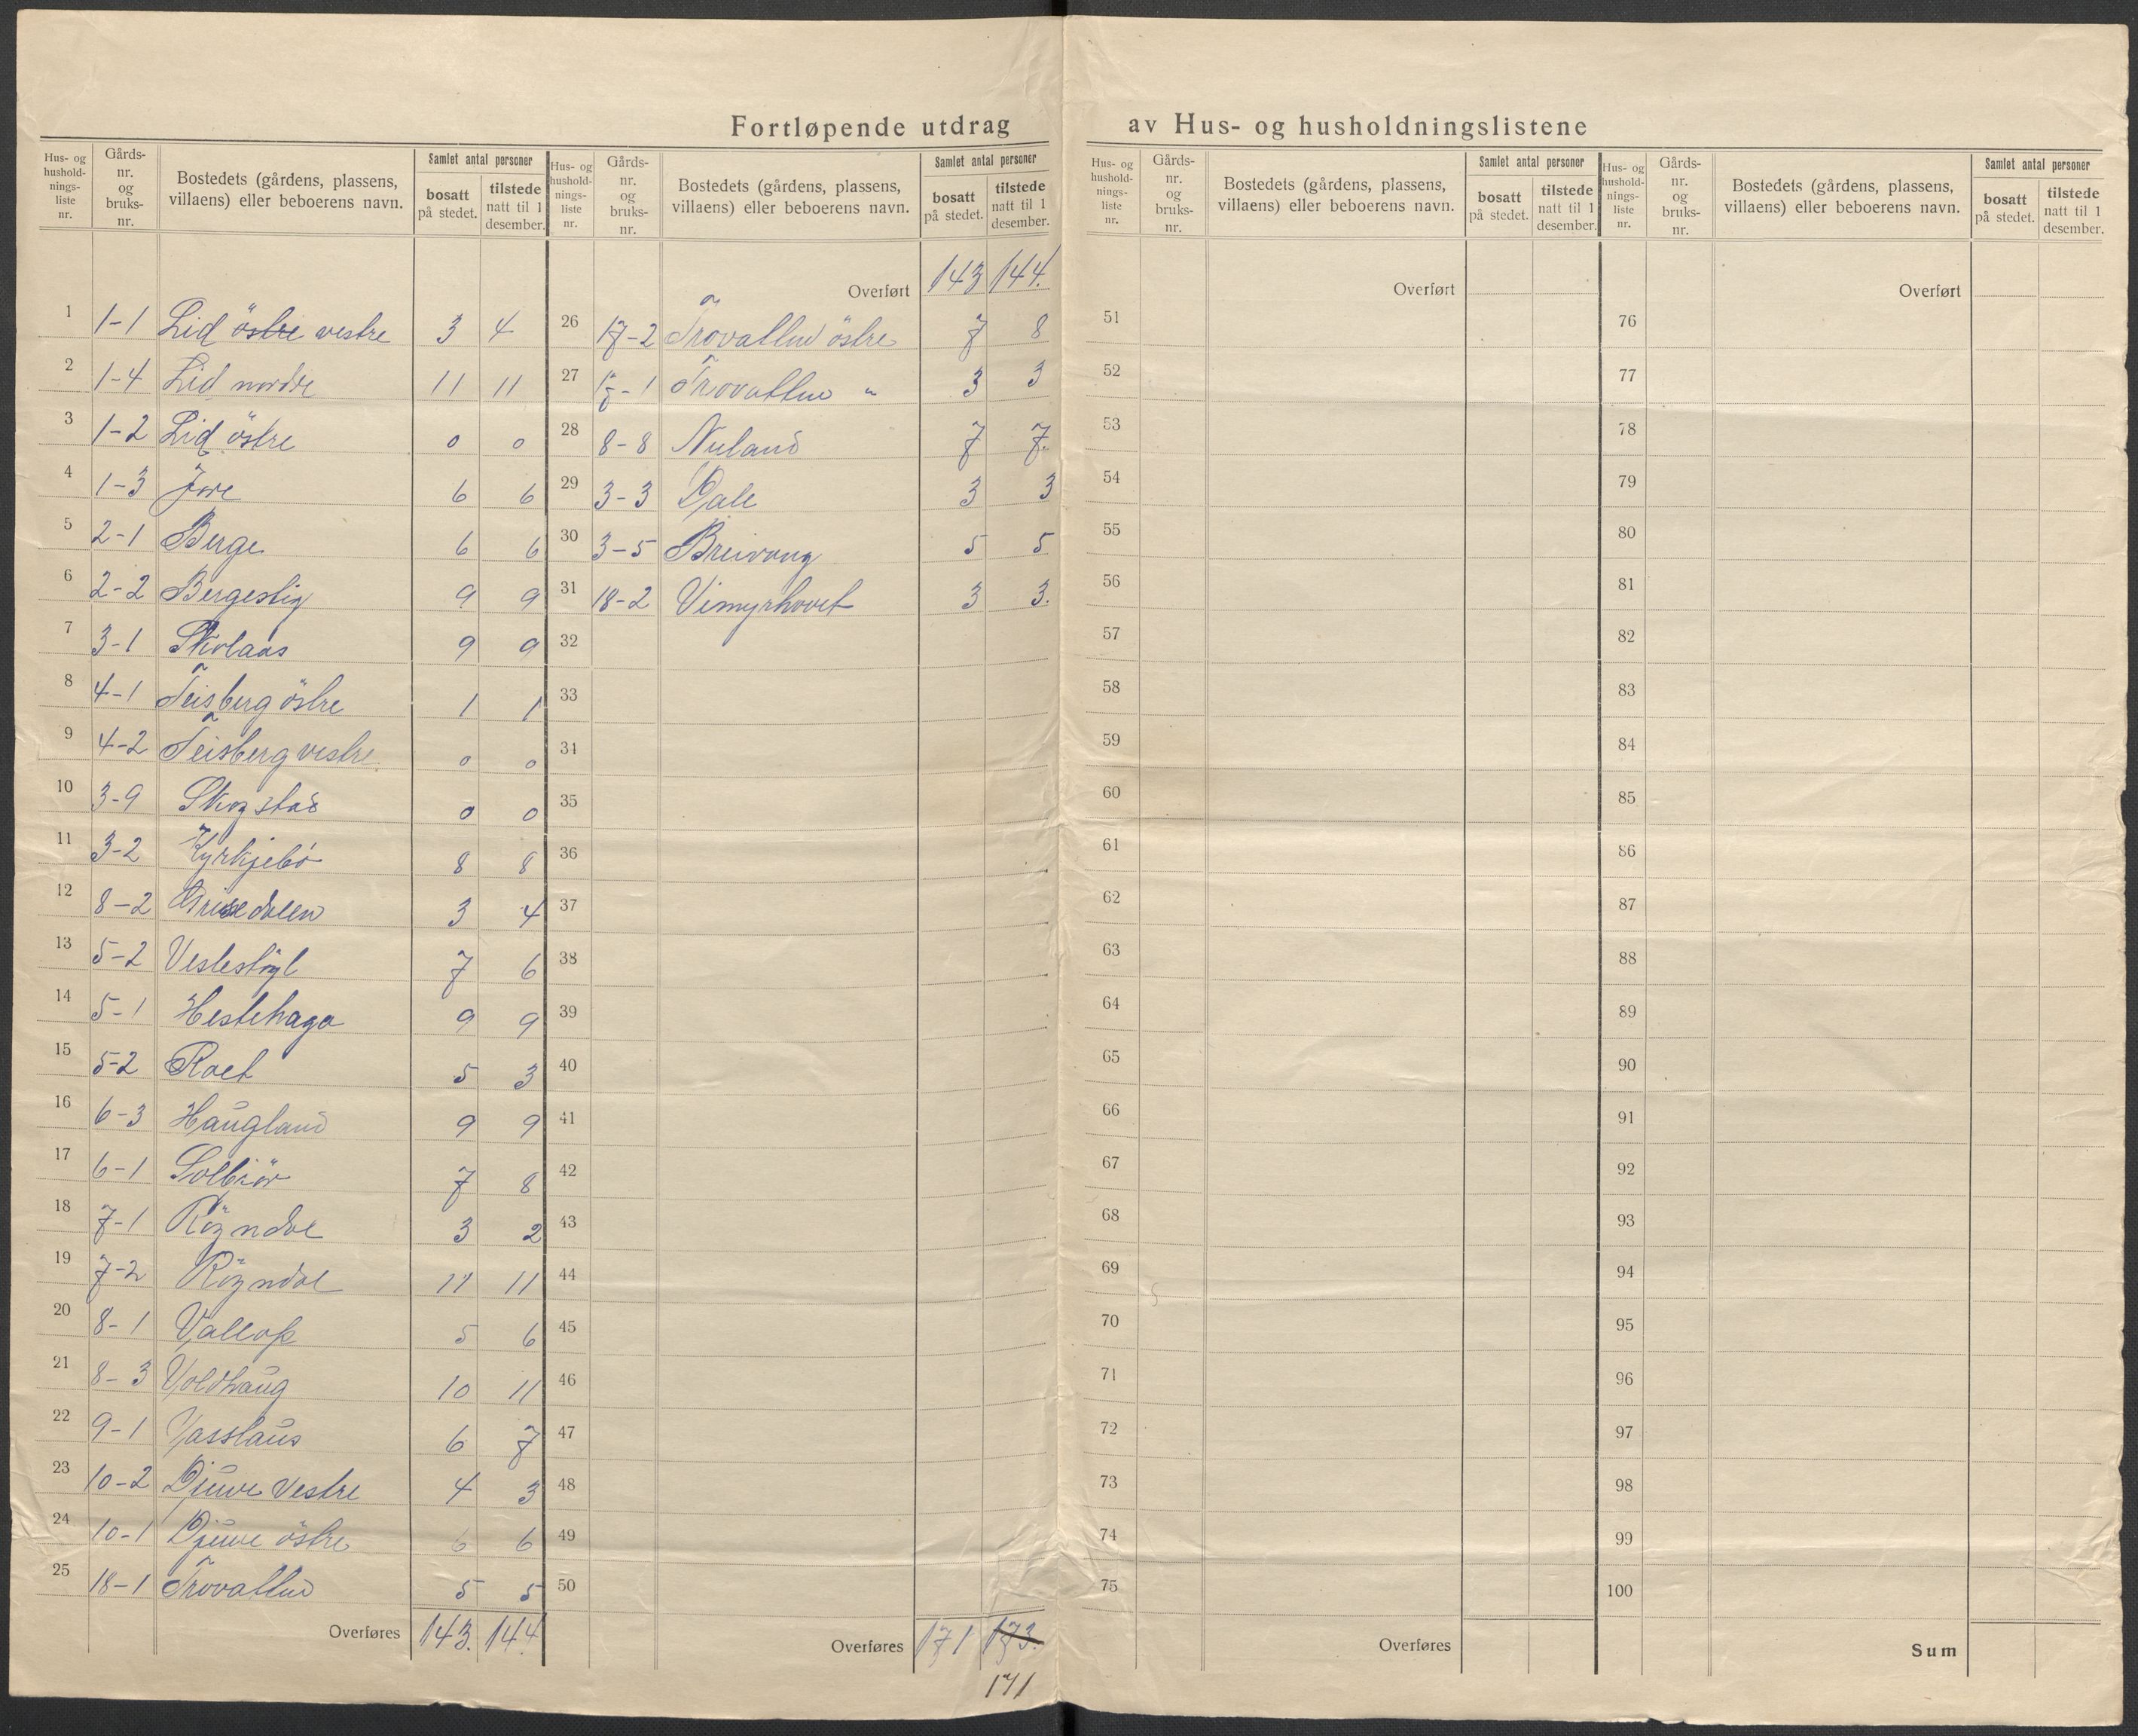 Fortløpende utdrag av Hus- og husholdningslistene
Hus- og husholdnings-liste nr. Gårds-nr. og bruks-nr. Bostedets (gårdens, plassens, villaens) eller beboerens navn. Samlet antal personer bosatt på stedet. tilstede natt til 1 desember.
1 1-1 Lid östre vestre 3 4
2 1-4 Lid nordre 11 11
3 1-2 Lid östre 0 0
4 1-3 Jore 6 6
5 2-1 Berge 6 6
6 2-2 Bergestig 9 9
7 3-1 Skolaas 9 9
8 4-1 Teisberg östre 1 1
9 4-2 Teisberg vestre 0 0
10 3-9 Skogstad 0 0
11 3-2 Kyrkjebö 8 8
12 8-2 Grisedalen 3 4
13 5-2 Veslestöyl 7 6
14 5-1 Hestehaga 9 9
15 5-2 Roet 5 3
16 6-3 Haugland 9 9
17 6-1 Solbiör 7 8
18 7-1 Röyndal 3 2
19 7-2 Röyndal 11 11
20 8-1 Vallop 5 6
21 8-3 Voldhaug 10 11
22 9-1 Vasslaus 6 7
23 10-2 Djuve Vestre 4 3
24 10-1 Djuve östre 6 6
25 18-1 Trovatten 5 5
Overføres 143. 144
Hus- og husholdnings-liste nr. Gårds-nr. og bruks-nr. Bostedets (gårdens, plassens, villaens) eller beboerens navn. Samlet antal personer bosatt på stedet. tilstede natt til 1 desember.
Overført 143 144.
26 17-2 Trovatten östre 7 8
27 17-1 Trovatten " 3 3
28 8-8 Nuland 7 7.
29 3-3 Dale 3 3
30 3-5 Breivang 5 5
31 18-2 Vimyrhovet 3 3.
32
33
34
35
36
37
38
39
40
41
42
43
44
45
46
47
48
49
50
Overføres 171 173.
171
Hus- og husholdnings-liste nr. Gårds-nr. og bruks-nr. Bostedets (gårdens, plassens, villaens) eller beboerens navn. Samlet antal personer bosatt på stedet. tilstede natt til 1 desember.
Overført
51
52
53
54
55
56
57
58
59
60
61
62
63
64
65
66
67
68
69
70
71
72
73
74
75
Overføres
Hus- og husholdnings-liste nr. Gårds-nr. og bruks-nr. Bostedets (gårdens, plassens, villaens) eller beboerens navn. Samlet antal personer bosatt på stedet. tilstede natt til 1 desember.
Overført
76
77
78
79
80
81
82
83
84
85
86
87
88
89
90
91
92
93
94
95
96
97
98
99
100
Sum